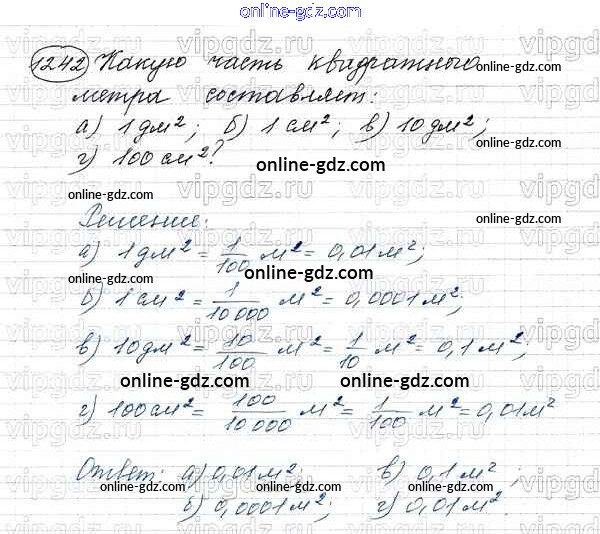 online-gdz.com
1242 Какую часть квадратного
метра составляет:
а) 1 дм²; б) 1 см²; в) 10 дм²;
г) 100 см²?
Решение:
а) 1 дм² = 1/100 м² = 0,01 м²;
б) 1 см² = 1/10 000 м² = 0,0001 м²;
в) 10 дм² = 10/100 м² = 1/10 м² = 0,1 м²;
г) 100 см² = 100/10 000 м² = 1/100 м² = 0,01 м²
Ответ: а) 0,01 м²; в) 0,1 м²;
б) 0,0001 м²; г) 0,01 м².